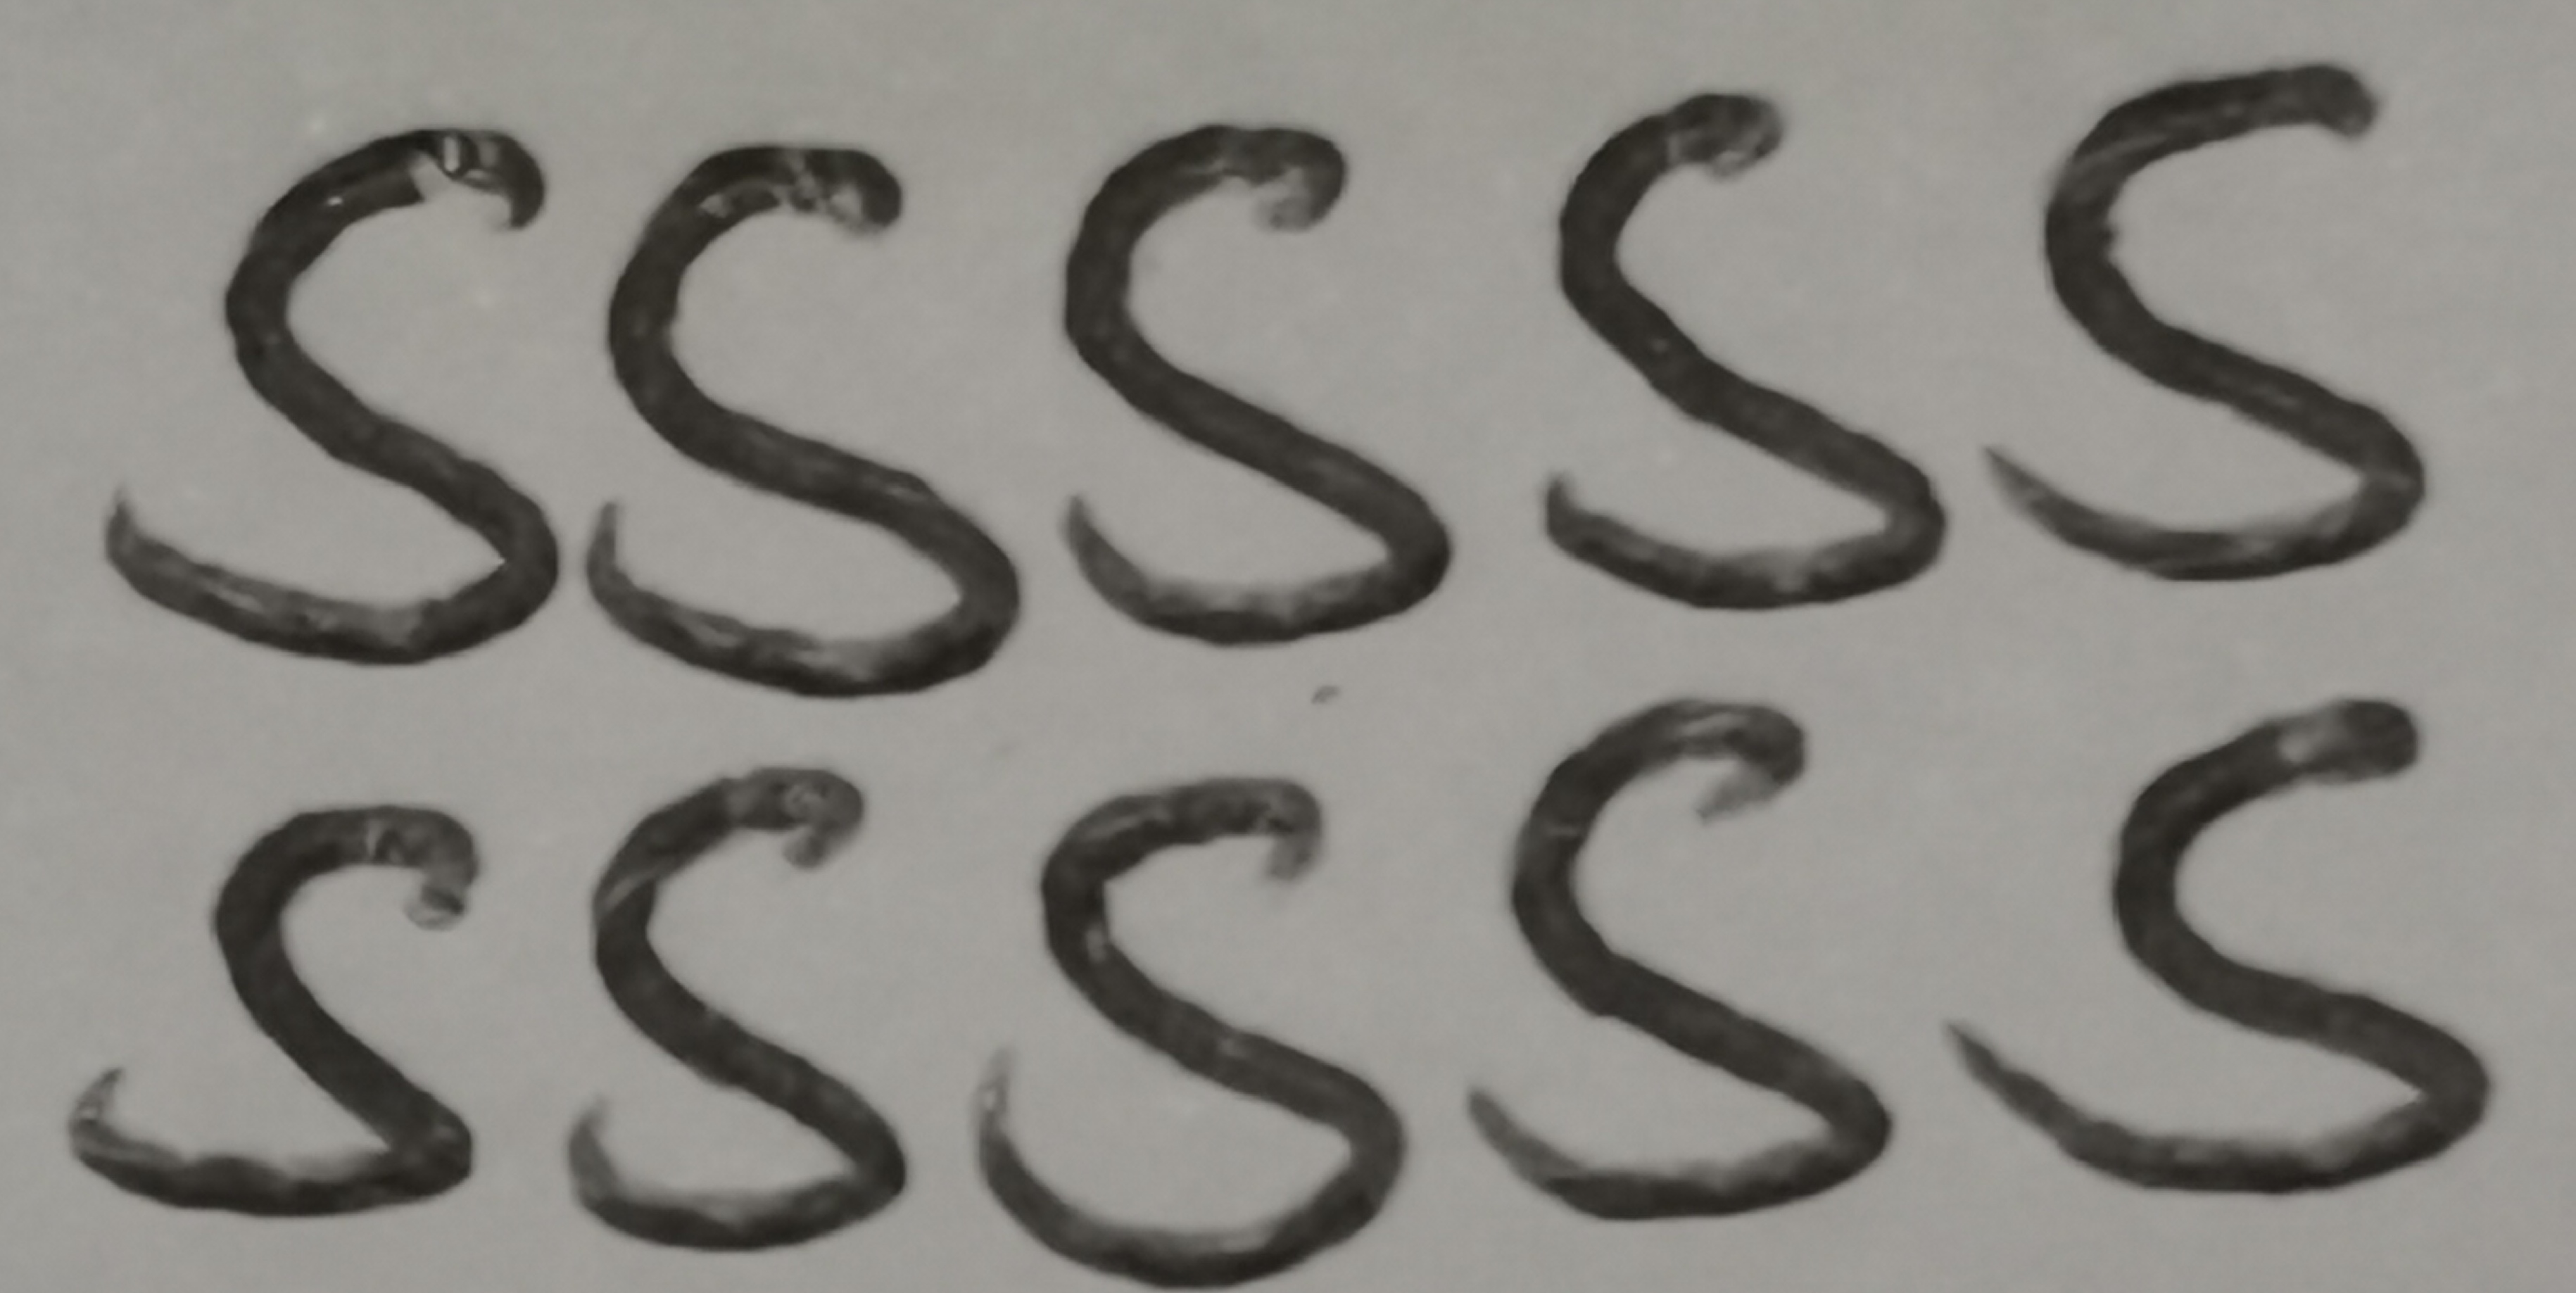 S S S S S
S S S S S